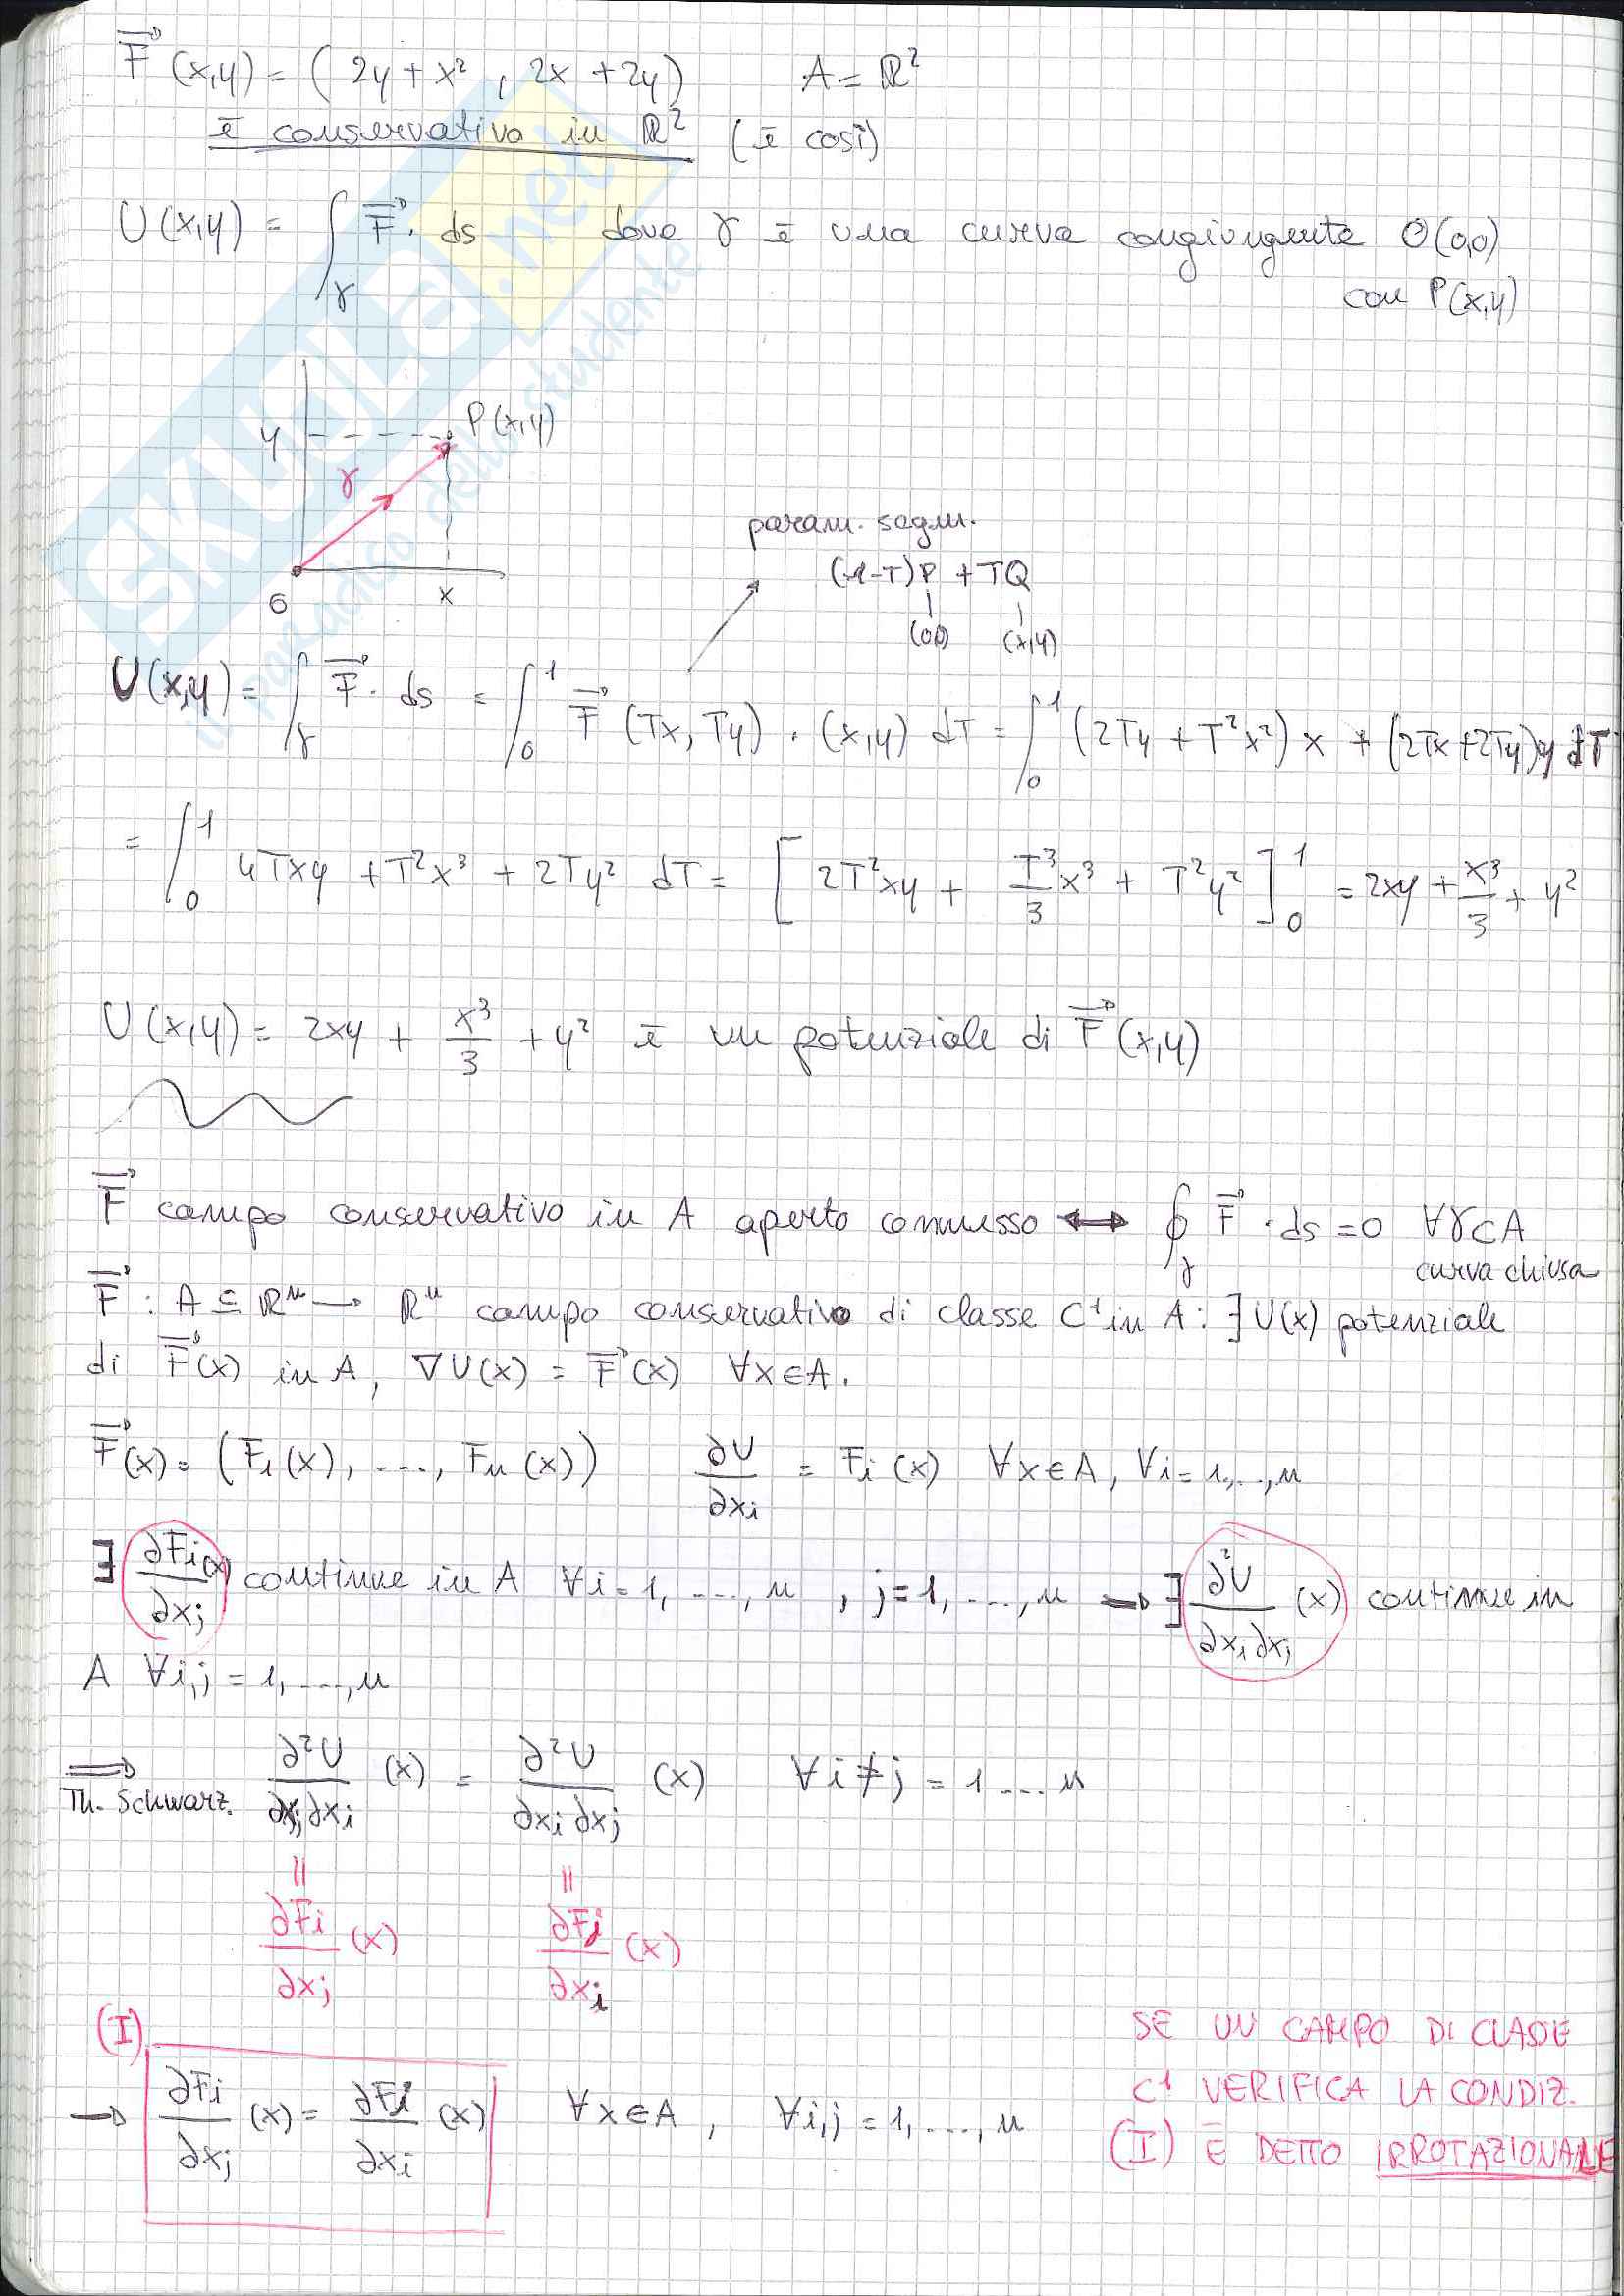 F⃗ (x,y) = ( 2y + x² , 2x + 2y) A = ℝ²
è conservativo in ℝ² (è così)
U(x,y) = ∫_γ F⃗ · ds dove γ è una curva congiungente O(0,0)
con P(x,y)
y P(x,y)
γ
O x
param. segm.
(1-T)P + TQ
(0,0) (x,y)
U(x,y) = ∫_γ F⃗ · ds = ∫₀¹ F⃗ (Tx, Ty) · (x,y) dT = ∫₀¹ (2Ty + T²x²) x + (2Tx+2Ty)y dT
= ∫₀¹ 4Txy + T²x³ + 2Ty² dT = [ 2T²xy + T³/3 x³ + T²y² ]₀¹ = 2xy + x³/3 + y²
U(x,y) = 2xy + x³/3 + y² è un potenziale di F⃗ (x,y)
F⃗ campo conservativo in A aperto connesso ↔ ∮_γ F⃗ · ds = 0 ∀γ⊂A
curva chiusa
F⃗ : A ⊆ ℝⁿ → ℝⁿ campo conservativo di classe C¹ in A : ∃ U(x) potenziale
di F⃗(x) in A, ∇U(x) = F⃗(x) ∀x∈A.
F⃗(x) = (F₁(x), ..., Fn(x)) ∂U/∂xi = Fi(x) ∀x∈A, ∀i=1,..,n
∃ ∂Fi/∂xj (x) continue in A ∀i=1, ..., n , j=1, ..., n → ∃ ∂²U/∂xi∂xj (x) continue in
A ∀i,j = 1, ..., n
⟹ Th. Schwarz. ∂²U/∂xj∂xi (x) = ∂²U/∂xi∂xj (x) ∀ i ≠ j = 1 ... n
= =
∂Fi/∂xj (x) ∂Fj/∂xi (x)
(I)
→ ∂Fi/∂xj (x) = ∂Fj/∂xi (x) ∀x∈A , ∀i,j = 1, ..., n
SE UN CAMPO DI CLASSE
C¹ VERIFICA LA CONDIZ.
(I) È DETTO IRROTAZIONALE
SKUOLA.net
il paradiso dello studente